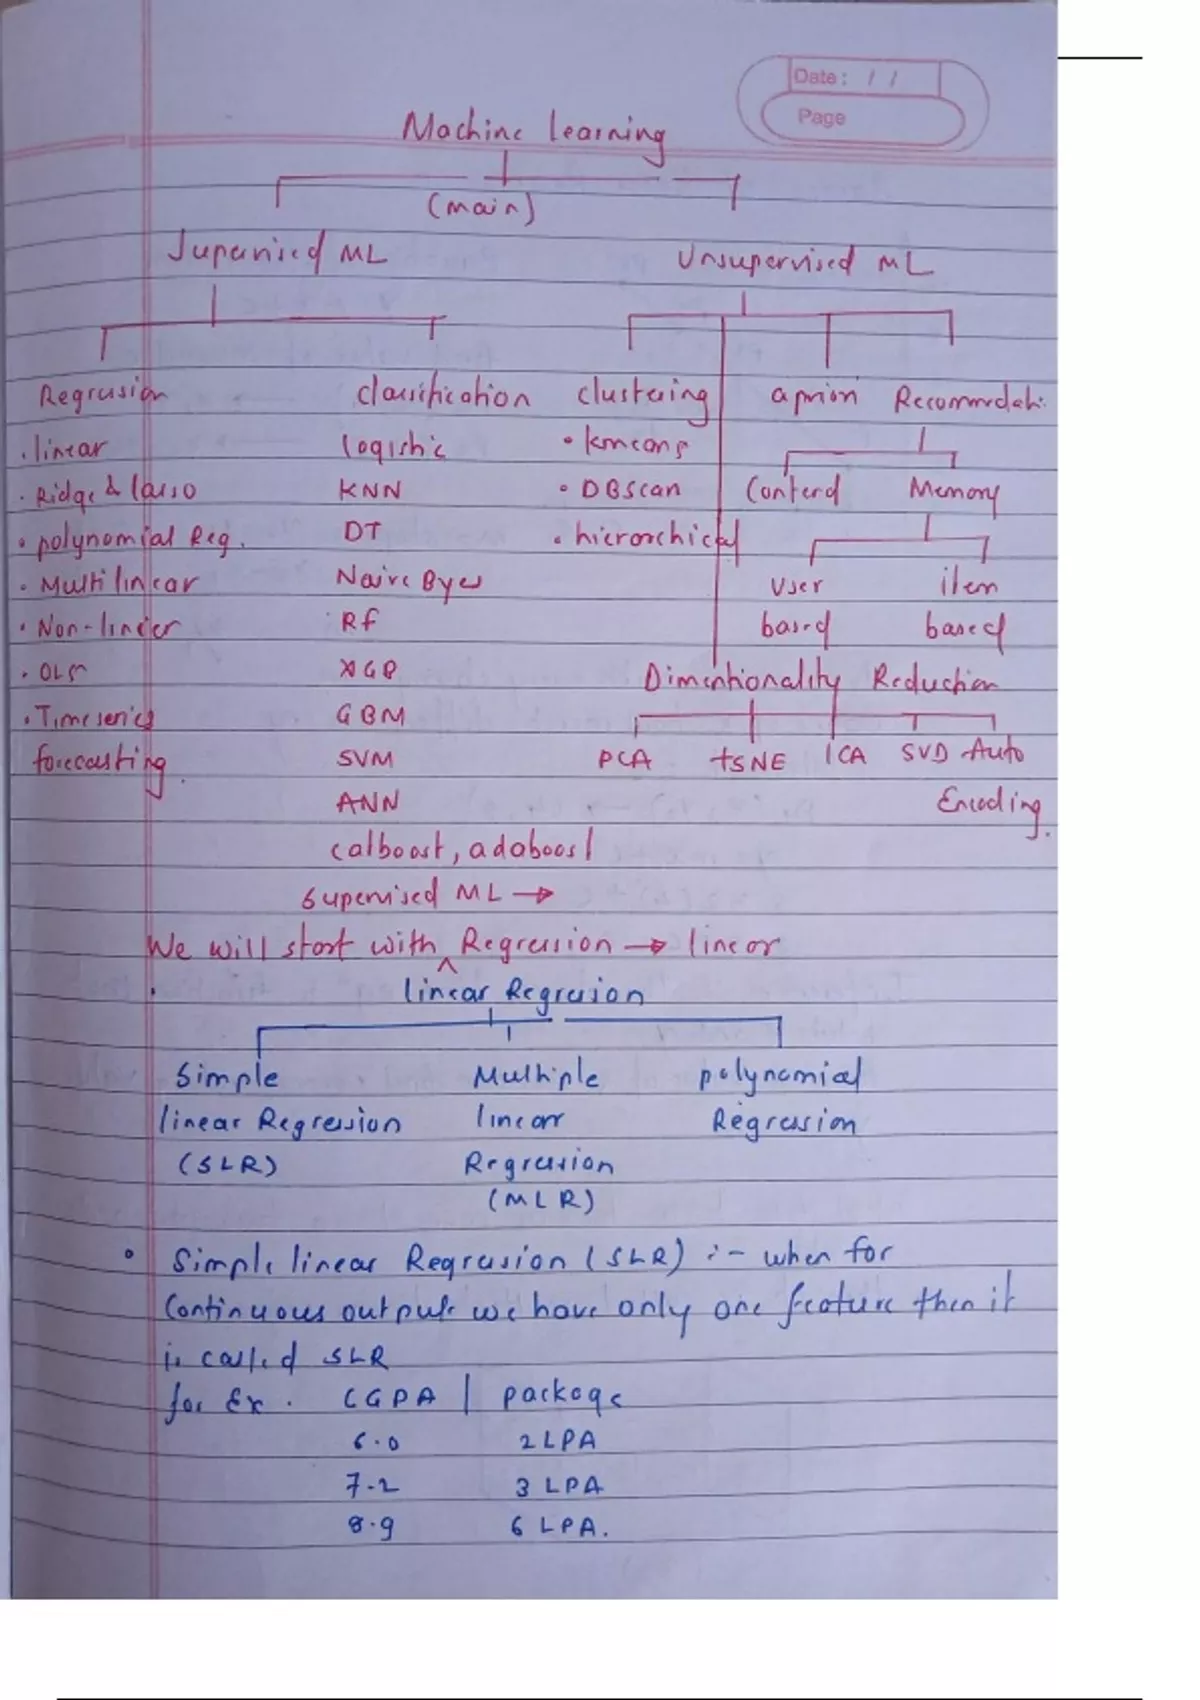 Date: / /
Page
Machine learning
(main)
Supervised ML Unsupervised ML
Regression classification clustering apriori Recommedati.
. linear logistic • kmeans
. Ridge & lasso KNN • DBScan Contend Memory
• polynomial Reg. DT • hierarchical
• Multi linear Naive Byes User item
• Non-linear Rf based based
• OLS XGB Dimentionality Reduction
• Timeseries GBM
forecasting. SVM PCA tSNE ICA SVD Auto
ANN Encoding.
catboost, adaboost
Supervised ML →
We will start with ^ Regression → linear
linear Regression
Simple Multiple polynomial
linear Regression linear Regression
(SLR) Regression
(MLR)
• Simple linear Regression (SLR) :- when for
Continuous output we have only one feature then it
is called SLR
for Ex. CGPA | package
6.0 2 LPA
7.2 3 LPA
8.9 6 LPA.